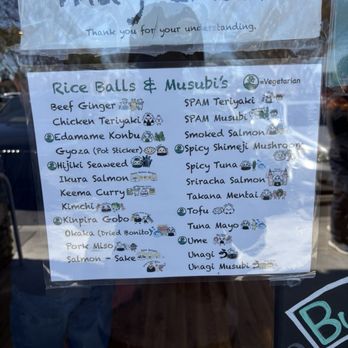 Thank you for your understanding.
Rice Balls & Musubi's
=Vegetarian
Beef Ginger
Chicken Teriyaki
Edamame Konbu
Gyoza (Pot Sticker)
Hijiki Seaweed
Ikura Salmon
Keema Curry
Kimchi
Kinpira Gobo
Okaka (Dried Bonito)
Pork Miso
Salmon - Sake
SPAM Teriyaki
SPAM Musubi
Smoked Salmon
Spicy Shimeji Mushroom
Spicy Tuna
Sriracha Salmon
Takana Mentai
Tofu
Tuna Mayo
Ume
Unagi
Unagi Musubi